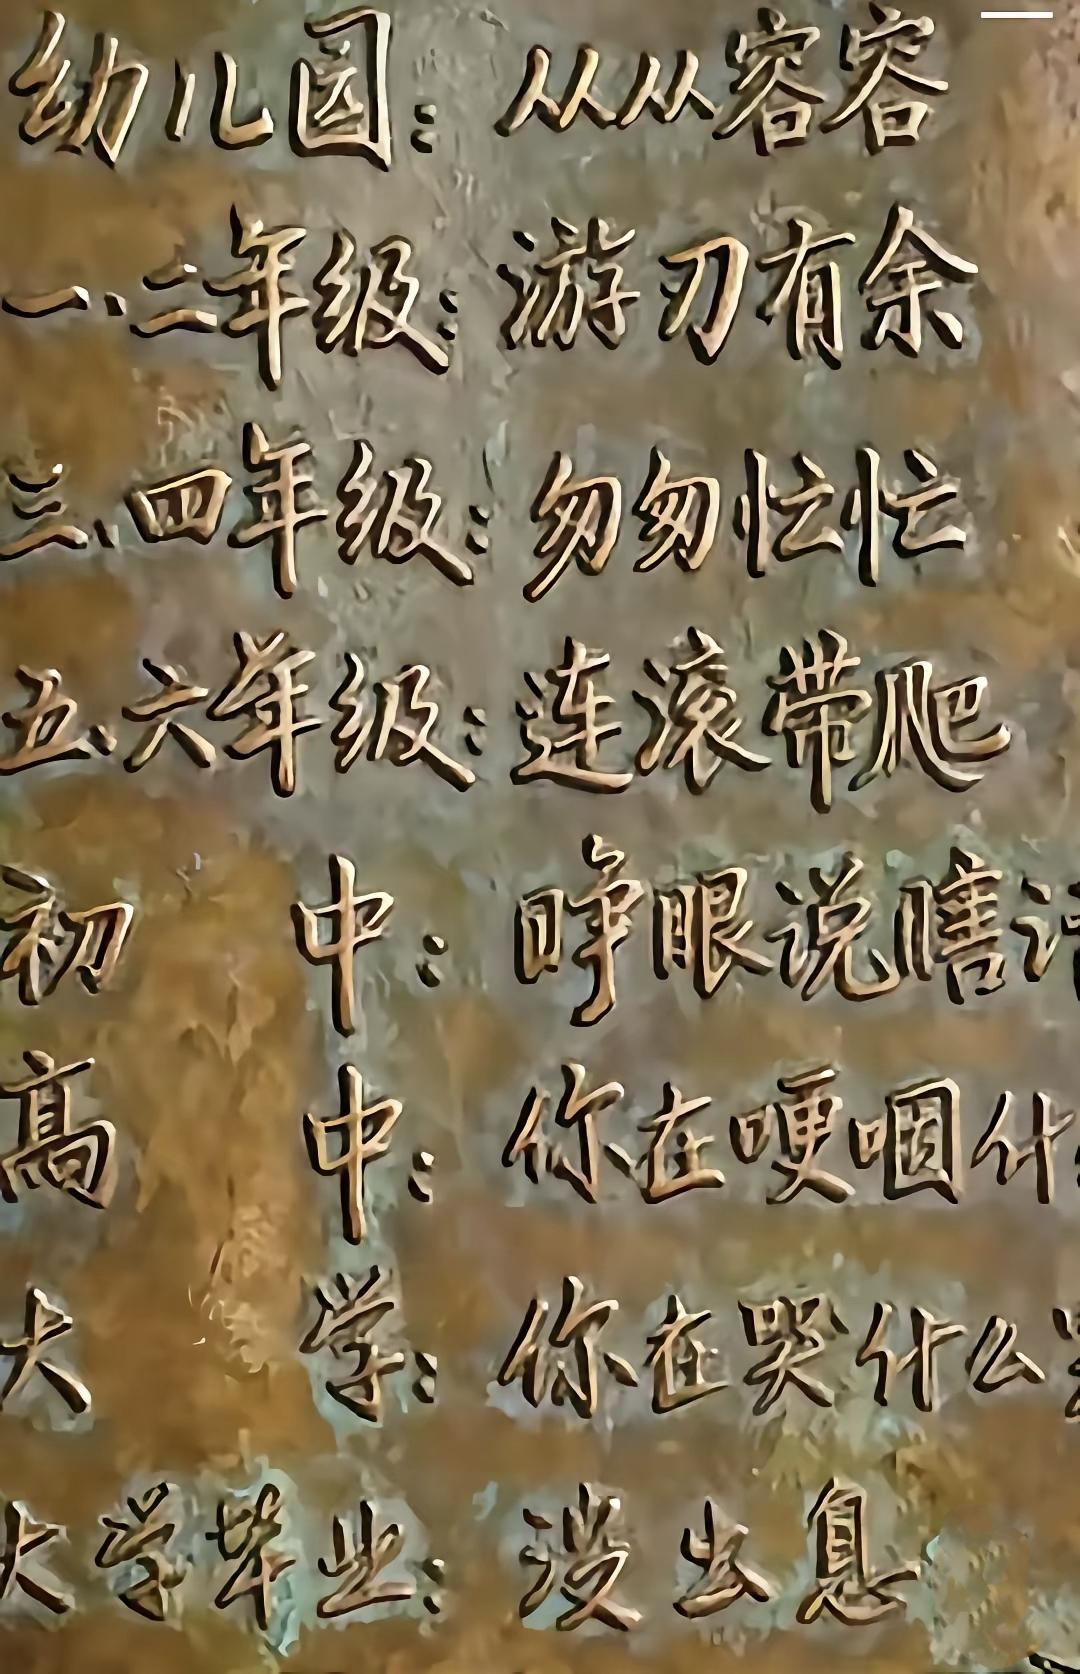 幼儿园：从从容容
一、二年级：游刃有余
三、四年级：匆匆忙忙
五、六年级：连滚带爬
初 中：睁眼说瞎
高 中：你在哽咽什
大 学：你在哭什么
大学毕业：没出息